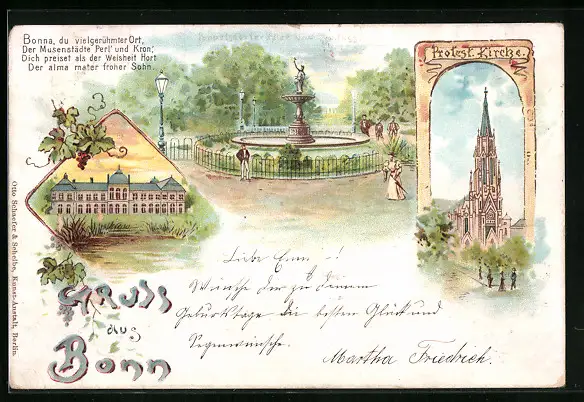 Bonna, du vielgerühmter Ort,
Der Musenstädte Perl' und Kron,
Dich preiset als der Weisheit Hort
Der alma mater froher Sohn.
Protest. Kirche.
Otto Schaefer & Scheibe, Kunst-Anstalt, Berlin.
Gruss
aus
Bonn
Liebe Emmi!
Wünsche Dir zu Deinem
Geburtstage die besten Glück und
Segenwünsche.
Martha Friedrich.